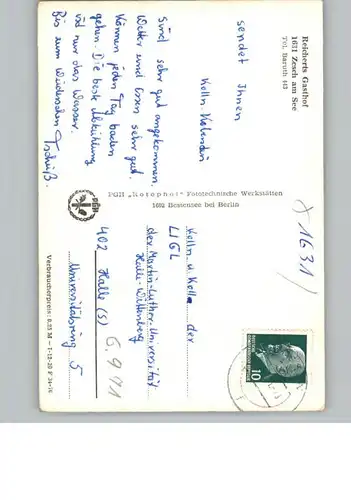 Reicherts Gasthof
1631 Zesch am See
Tel. Baruth 443
sendet Ihnen
Kolln.
Sind sehr gut angekommen.
Wetter und Essen sehr gut.
Können jeden Tag baden
gehen. Die beste Abkühlung
ist nur das Wasser.
Bis zum
Tschüß.
PGH
PGH „Rotophot" Fototechnische Werkstätten
1602 Bestensee bei Berlin
X 1631
Kolln. u. Koll. der
LIGL
der Martin-Luther-Universität
Halle-Wittenberg
402 Halle (S)
6.9.71
Universitätsring 5
10
Verbraucherpreis: 0,25 M